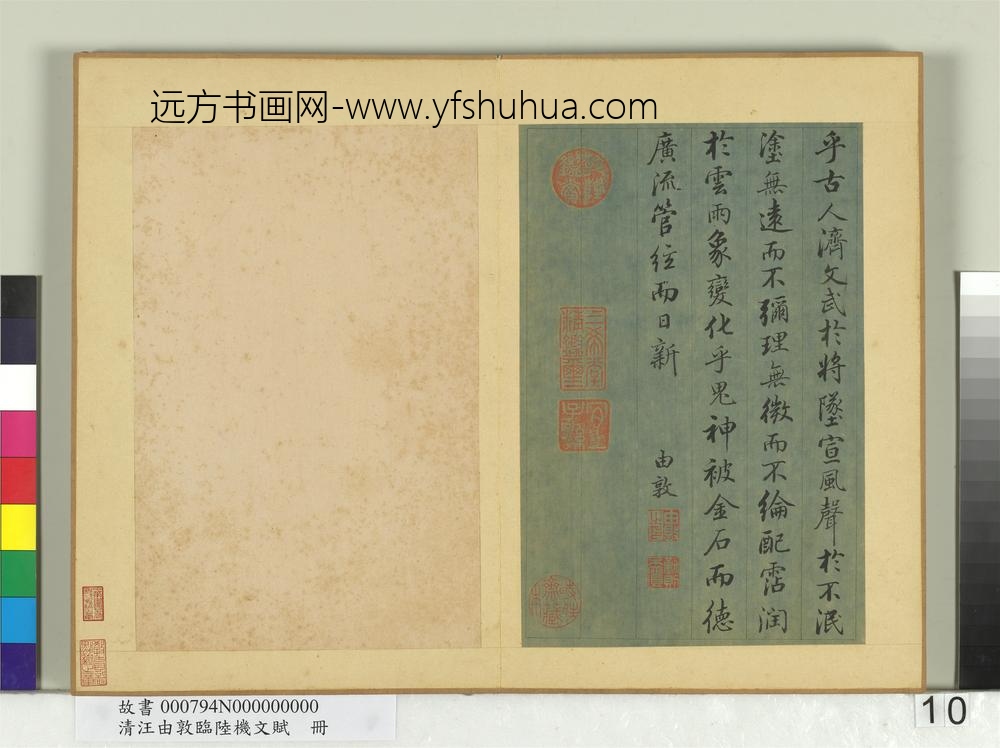 远方书画网-www.yfshuhua.com
乎古人濟文武於將墜宣風聲於不泯
塗無遠而不彌理無微而不綸配霑潤
於雲雨象變化乎鬼神被金石而德
廣流管絃而日新
由敦
三希堂精鑑璽
宜子孫
故書 000794N000000000
清汪由敦臨陸機文賦 冊
10